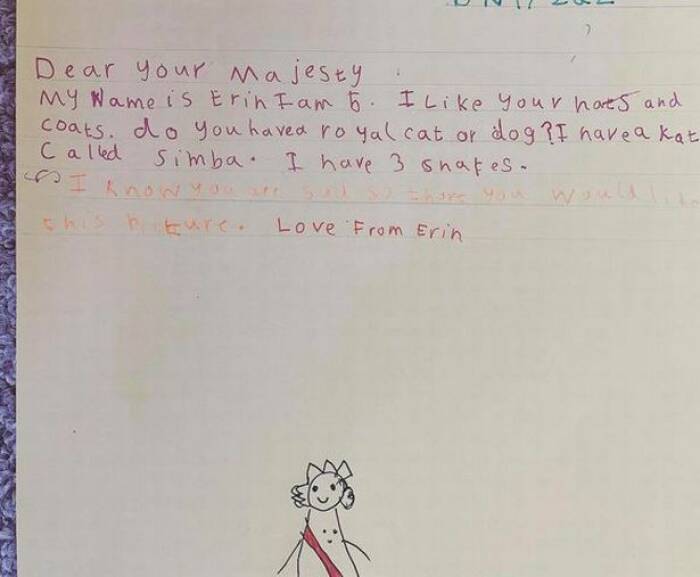 Dear your Majesty
My Name is Erin I am 6. I Like your hats and
coats. do you have a royal cat or dog? I have a kat
Called Simba. I have 3 snakes.
I know you are sad so you would like
this picture. Love From Erin